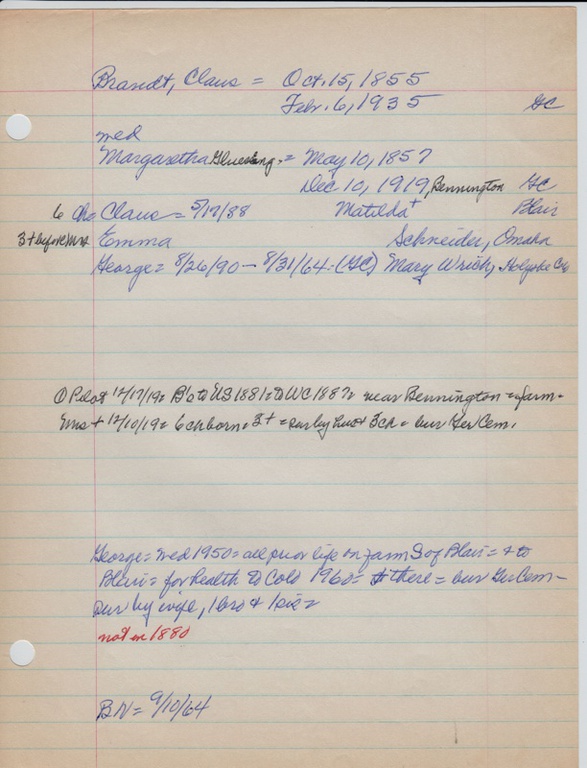 Brandt, Claus = Oct. 15, 1855
Feb. 6, 1935 GC
wed
Margaretha = May 10, 1857
Dec 10, 1919, Bennington GC
6 Ch = Claus = 5/17/88 Matilda + Blair
3 + before Mrs Emma Schneider, Omaha
George = 8/26/90 – 8/31/64 = (GC) Mary Wrich, Holyoke Colo
O Pilot 12/17/19 = B to US 1881 = to WC 1887 = near Bennington = farm =
Mrs + 12/10/19 = 6 ch born = 3 + = sur by hus + 3 ch = bur Ger Cem.
George = wed 1950 = all prior life on farm S of Blair = + to
Blair = for health to Colo 1960 = + there = bur Ger Cem –
sur by wife, 1 bro + 1 sis =
not in 1880
BN = 9/10/64